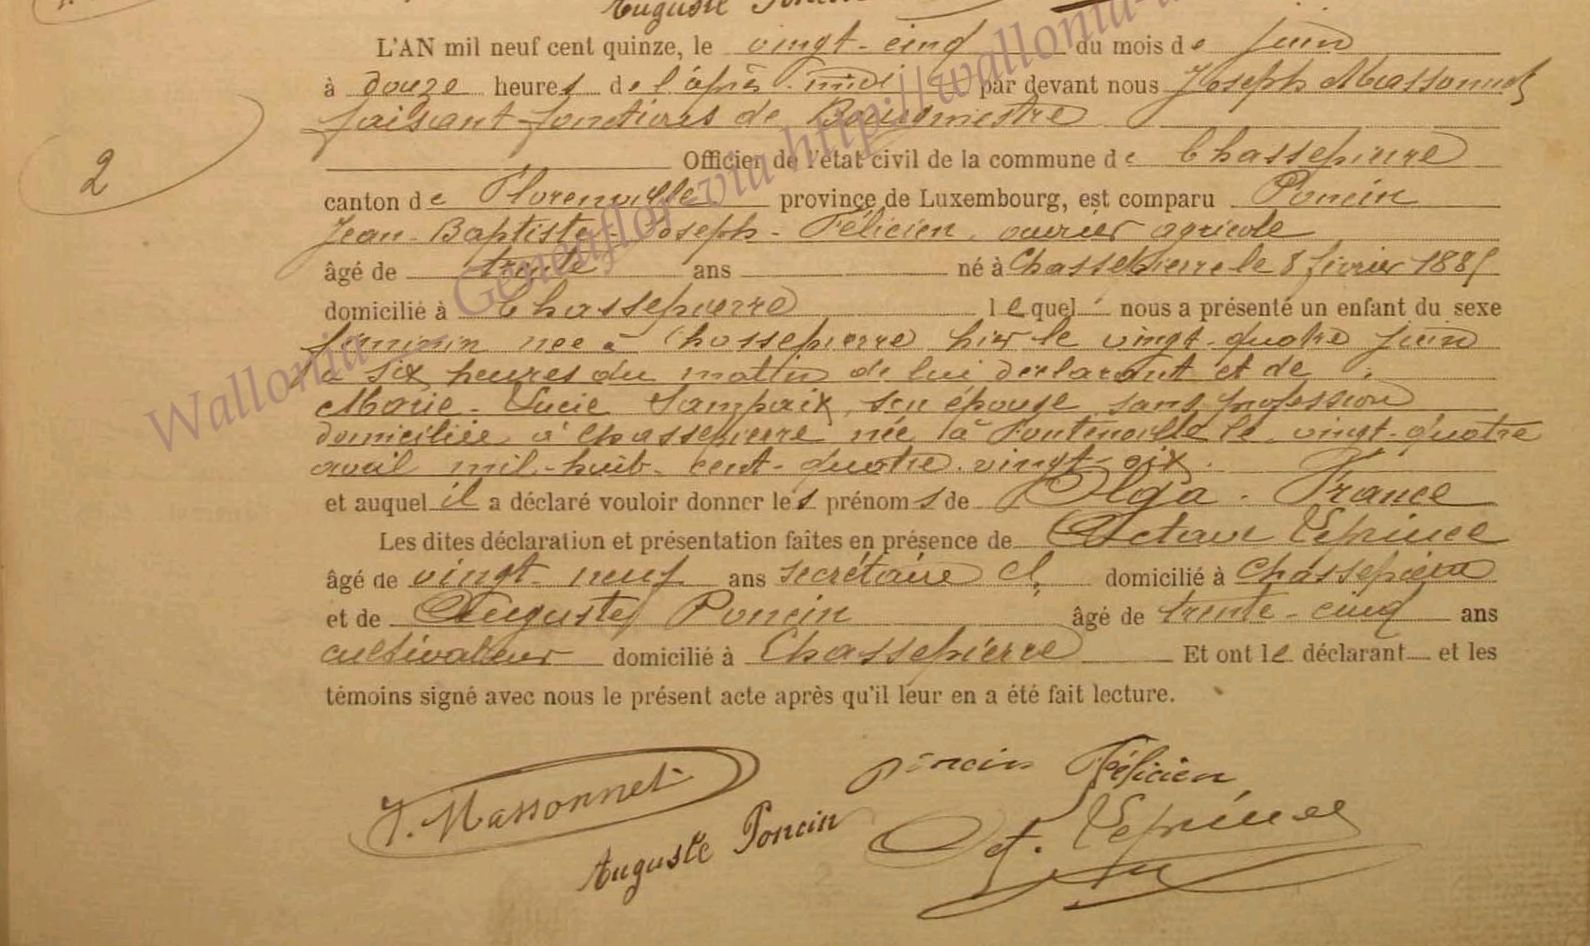 Auguste Poncin
L'AN mil neuf cent quinze, le vingt-cinq du mois de juin
à douze heures de l'après-midi par devant nous Joseph Massonnet
faisant fonctions de Bourgmestre
Officier de l'état civil de la commune de Chassepierre
2
canton de Florenville province de Luxembourg, est comparu Poncin
Jean-Baptiste-Joseph-Félicien, ouvrier agricole
âgé de trente ans né à Chassepierre le 8 février 1885
domicilié à Chassepierre lequel nous a présenté un enfant du sexe
féminin née à Chassepierre hier le vingt-quatre juin
à six heures du matin de lui déclarant et de
Marie-Lucie Lampaix, son épouse, sans profession
domiciliée à Chassepierre née à Fontenoille le vingt-quatre
avril mil-huit-cent-quatre-vingt-six.
et auquel il a déclaré vouloir donner les prénoms de Olga-France
Les dites déclaration et présentation faites en présence de Octave Leprince
âgé de vingt-neuf ans secrétaire cl, domicilié à Chassepierre
et de Auguste Poncin âgé de trente-cinq ans
cultivateur domicilié à Chassepierre Et ont le déclarant et les
témoins signé avec nous le présent acte après qu'il leur en a été fait lecture.
Poncin Félicien
J. Massonnet
Auguste Poncin
Oct. Leprince
Wallonia Geneaflor via http://wallonia-